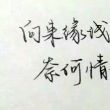 向来缘浅
奈何情